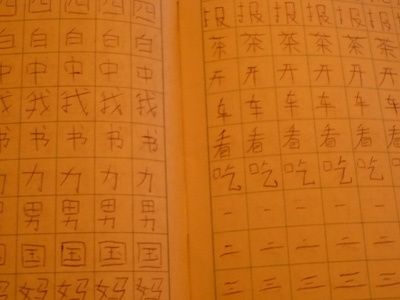 四 四 四 四 四
白 白 白 白 白
中 中 中 中 中
我 我 我 我 我
书 书 书 书 书
力 力 力 力 力
男 男 男 男 男
国 国 国 国 国
妈 妈 妈 妈 妈
报 报 报 报 报 报
茶 茶 茶 茶 茶 茶
开 开 开 开 开 开
车 车 车 车 车 车
看 看 看 看 看 看
吃 吃 吃 吃 吃 吃
一 一 一 一 一 一
二 二 二 二 二 二
三 三 三 三 三 三